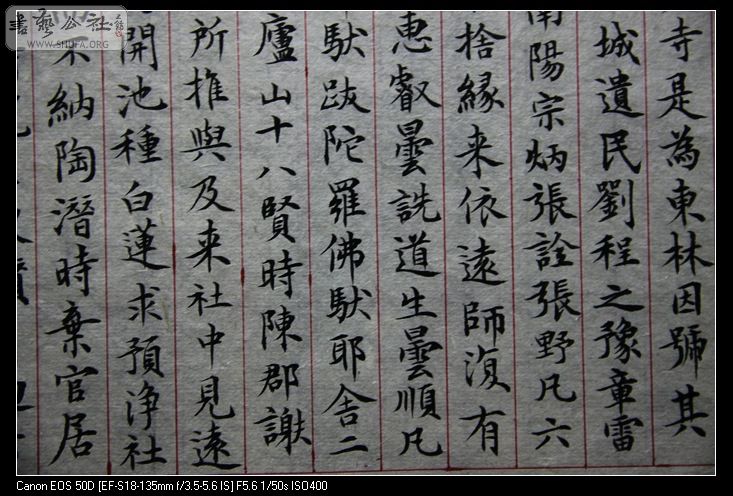 寺是為東林因號其
城遺民劉程之豫章雷
南陽宗炳張詮張野凡六
捨緣来依遠師須有
恵叡曇詵道生曇順凡
馱跋陀羅佛馱耶舍二
廬山十八賢時陳郡謝
所推與及来社中見遠
開池種白蓮求預浄社
不納陶潛時棄官居
書藝公社
WWW.SHUFA.ORG
Canon EOS 50D [EF-S18-135mm f/3.5-5.6 IS] F5.6 1/50s ISO400